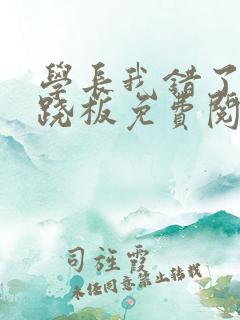 學長我錯了
跷板免費閱
司旌霞
未经同意禁止转载